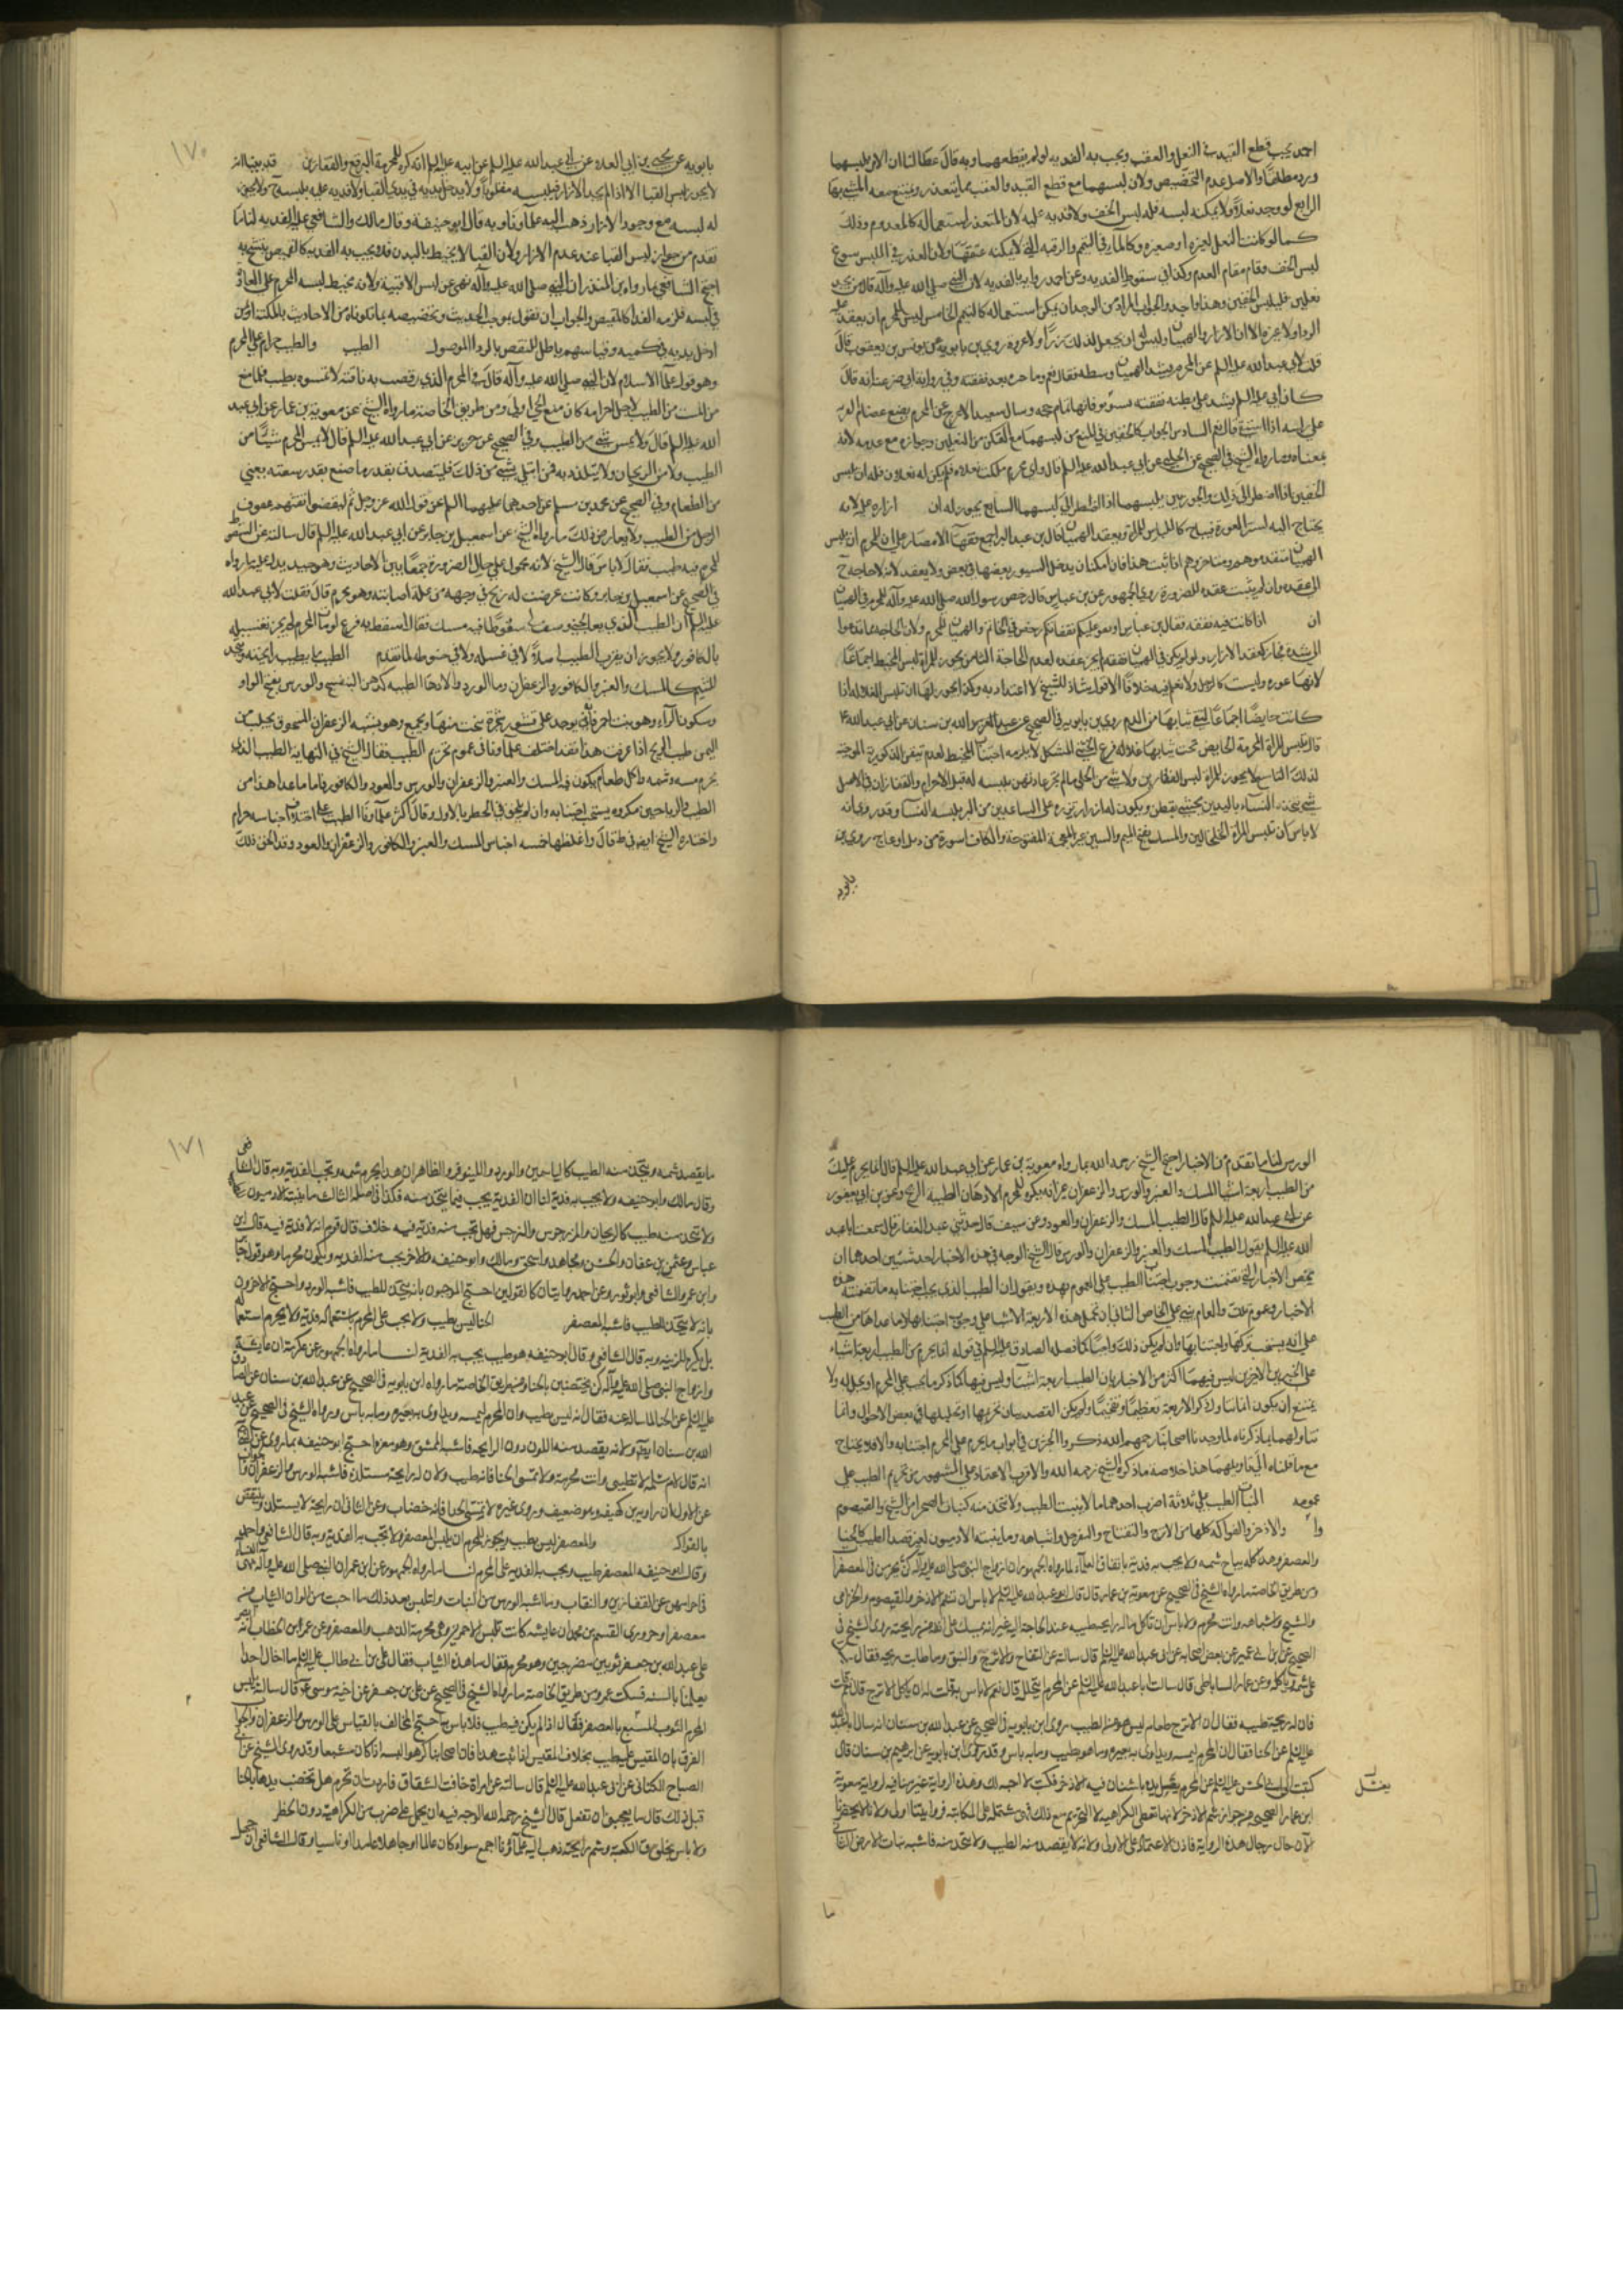 احمد يجب قطع القيد في النعل والعقب ويجب به الفديه لو لم يقطعهما وبه قال عطا لنا ان الاذن بلبسهما
ورد مطلقا والاصل عدم التخصيص ولان لبسهما مع قطع القيد والعقب مما يتعذر ويمتنع معه المشي بها
الرابع لو وجد نعلا ولا يمكنه لبسه فله لبس الخف ولا فديه عليه لان المتعذر استعماله كالمعدوم وذلك
كما لو كانت النعل لغيره او صغيره وكالماء في التيمم والرقبه التي لا يمكنه عتقها ولان العذر في الملبس سوغ
لبس الخف وقام مقام العدم وكذا في سقوط الفديه وعن احمد روايه بالفديه لان النبي صلى الله عليه وآله قال من لم يجد
نعلين فليلبس الخفين وهذا واجد والجواب المراد من الوجدان يمكن استعماله كالتيمم الخامس ليس للمحرم ان يعقد عليه
الرداء ولا غيره الا الازار والهميان وليس له ان يجعل لذلك زرا ولا عروة روى بن بابويه عن يونس بن يعقوب قال
قلت لابي عبدالله عليه السلم عن المحرم يشد الهميان وسطه فقال نعم وما خيره بعد نفقته وفي روايه ابي بصير عنه انه قال
كان ابي عليه السلم يشد على بطنه نفقته يستوثق بها فانها تمام حجه وسال سعيد الاعرج عن المحرم يضع عصام القربه
على راسه اذا استسقى قال نعم السادس الجواب كالخفين في المنع من لبسهما مع التمكن من النعلين وجوازه مع عدمه لانه
بمعناه وما رواه الشيخ في الصحيح عن الحلبي عن ابي عبدالله عليه السلم قال واي محرم هلكت نعلاه فلم يكن له نعلان فله ان يلبس
الخفين اذا اضطر الى ذلك والجوربين يلبسهما اذا اضطر الى لبسهما السابع يجوز له ان ازاره عليه لانه
يحتاج اليه لستر العورة فيباح كاللباس للمراة ويعقد الهميان قال بن عبدالبر اجمع فقهاء الامصار على ان للمحرم ان يلبس
الهميان متقدموهم ومتاخروهم اذا ثبت هذا فان امكنه ان يدخل السيور بعضها في بعض ولا يعقد لانه لا حاجه ح
الى عقده وان لم يثبت عقده للضرورة روى الجمهور عن بن عباس قال رخص رسول الله صلى الله عليه وآله للمحرم في الهميان
ان اذا كانت فيه نفقه وقال بن عباس اوثقوا عليكم نفقاتكم رخص في الخاتم والهميان للمحرم ولان الحاجه مما تدعوا
الى شده فجاز كعقد الازار ولو لم يكن في الهميان نفقه لم يجز عقده لعدم الحاجة الثامن يجوز للمراة لبس المخيط اجماعا
لانها عوره وليست كالرجل ولا نعلم فيه خلافا الا قولا شاذا للشيخ لا اعتداد به وكذا يجوز لها ان تلبس الغلاله اذا
كانت حايضا اجماعا لتقي ثيابها من الدم روى بن بابويه في الصحيح عن عبدالله بن سنان عن ابي عبدالله ع
قال تلبس المراة المحرمة الحايض تحت ثيابها غلاله فرع الخنثى المشكل لا يلزمه اجتناب المخيط لعدم تيقن الذكوريه الموجبه
لذلك التاسع لا يجوز للمراة لبس القفازين ولا شي من الحلي مالم تجر عادتهن بلبسه له قبل الاحرام والقفازان في الاصل
شي تتخذه النساء باليدين يحشى بقطن ويكون له ازرار تزره على الساعدين من البرد تلبسه النساء وقد روى انه
لا باس ان تلبس المراة الخلخالين والمسك بفتح الميم والسين غير المعجمة المفتوحة والكاف اسورة من ذبل او عاج روى بن
بابويه
١٧٠
بابويه عن يحيى بن ابي العلاء عن ابي عبدالله عليه السلم عن ابيه عليه السلم انه كره للمحرمة البرقع والقفازين قد بينا انه
لا يجوز لبس القباء الا اذا لم يجد الازار فيلبسه مقلوبا ولا يدخل يديه في يدي القباء ولا فديه عليه بلبسه ح ولا يجوز
له لبسه مع وجود الازار ذهب اليه علماؤنا وبه قال ابو حنيفة وقال مالك والشافعي عليه الفديه لنا ما
تقدم من جواز لبس القباء عند عدم الازار ولان القباء لا يحيط بالبدن فلا يجب به الفديه كالقميص يتشح به
احتج الشافعي بما رواه بن المنذر ان النبي صلى الله عليه وآله نهى عن لبس الاقبية ولانه مخيط لبسه المحرم على العادة
في لبسه فلزمه الفداء كالقميص والجواب ان نقول بموجب الحديث وتخصيصه بما تلوناه من الاحاديث بالمكتسي اذا لم
ادخل يديه في كميه وقياسهم باطل للنقص بالرداء الموصول الطيب والطيب حرام على المحرم
وهو قول علماء الاسلام لان النبي صلى الله عليه وآله قال في المحرم الذي وقصت به ناقته لا تمسوه بطيب فلما منع
من الميت من الطيب لاجل احرامه كان منع الحي اولى ومن طريق الخاصة ما رواه الشيخ عن معوية بن عمار عن ابي عبد
الله عليه السلم قال ولا يمس شي من الطيب وفي الصحيح عن حريز عن ابي عبدالله عليه السلم قال لا يمس المحرم شيئا من
الطيب ولا من الريحان ولا يتلذذ به فمن ابتلي بشي من ذلك فليتصدق بقدر ما صنع بقدر سعته يعني
من الطعام وفي الصحيح عن محمد بن مسلم عن احدهما عليهما السلم عن قول الله عز وجل ثم ليقضوا تفثهم حفوف
الرجل من الطيب ولا يعارض ذلك ما رواه الشيخ عن اسمعيل بن جابر عن ابي عبدالله عليه السلم قال سالته عن السعوط
للمحرم فيه طيب فقال لا باس قال الشيخ لانه محمول على حال الضرورة جمعا بين الاحاديث وهو جيد يدل عليه ما رواه
في الصحيح عن اسمعيل بن جابر وكانت عرضت له ريح في وجهه من علة اصابته وهو محرم قال فقلت لابي عبدالله
عليه السلم ان الطبيب الذي يعالجني وصف لي سعوطا فيه مسك فقال اسقط به فرع لو مات المحرم لم يجز تغسيله
بالكافور ولا يجوز ان يقرب الطيب اصلا لا في غسله ولا في حنوطه لما تقدم الطيب ما يطيب رايحته ويتخذ
للشم كالمسك والعنبر والكافور والزعفران وماء الورد والادهان الطيبه كدهن البنفسج والورس بفتح الواو
وسكون الراء وهو نبت احمر قاني يوجد على قشور شجرة ينحت منها ويجمع وهو يشبه الزعفران المسحوق يجلب من
اليمن طيب الريح اذا عرفت هذا فقد اختلف علماؤنا في عموم تحريم الطيب فقال الشيخ في النهاية الطيب الذي
يحرم مسه وشمه واكل طعام يكون فيه المسك والعنبر والزعفران والورس والعود والكافور فاما ما عدا هذا من
الطيب والرياحين مكروه يستحب اجتنابه وان لم يلحق في الحظر بالاول وقال اكثر علماؤنا الطيب على اختلاف اجناسه حرام
واختاره الشيخ ايضا في ط قال واغلظها خمسه اجناس المسك والعنبر والكافور والزعفران والعود وقد الحق ذلك
الورس لنا ما تقدم من الاخبار احتج الشيخ رحمه الله بما رواه معوية بن عمار عن ابي عبدالله عليه السلم قال انما يحرم عليك
من الطيب اربعة اشيا المسك والعنبر والورس والزعفران غير انه يكره للمحرم الادهان الطيبة الريح وعن بن ابي يعفور
عن ابي عبدالله عليه السلم قال الطيب المسك والزعفران والعود وعن سيف قال حدثني عبدالغفار قال سمعت ابا عبد
الله عليه السلم يقول الطيب المسك والعنبر والزعفران والورس قال الشيخ الوجه في هذه الاخبار احد شيئين احدهما ان
نخص الاخبار التي تضمنت وجوب اجتناب الطيب على العموم بهذه ونقول ان الطيب الذي يجب اجتنابه ما تضمنته هذه
الاخبار وعموم تلك والعام يبنى على الخاص الثاني ان نحمل هذه الاربعة الاشيا على وجوب اجتنابها وما عداها من الطيب
على انه يستحب تركها واجتنابها وان لم يكن ذلك واجبا كما فصله الصادق عليه السلم في قوله انما يحرم من الطيب اربعة اشياء
على الخبرين الاخرين ليس فيهما اكثر من الاخبار بان الطيب اربعة اشيا وليس فيها كما ذكر ما يجب على المحرم او يحل له ولا
يمتنع ان يكون انما ذكر الاربعة تعظيما وتفخيما ولم يكن القصد بيان تحريمها او تحليلها في بعض الاحوال وانما
تاولهما بما ذكرناه لما وجدنا اصحابنا رحمهم الله ذكروا الخبرين في ابواب ما يحرم على المحرم اجتنابه والا فلا يحتاج
مع ما قلناه الى تاويلهما هذا خلاصه ما ذكره الشيخ رحمه الله والاقرب الاعتماد على المشهور من تحريم الطيب على
عمومه النبات الطيب على ثلاثة اضرب احدها ما لا ينبت للطيب ولا يتخذ منه كنبات الصحراء من الشيح والقيصوم
وا والاذخر والفواكه كلها من الاترج والتفاح والسفرجل واشباهه وما ينبته الادميون لغير قصد الطيب كالحنا
والعصفر وهذا كله يباح شمه ولا يجب به فديه باتفاق العلماء لما رواه الجمهور ان ازواج النبي صلى الله عليه وآله كن يحرمن في المعصفرات
ومن طريق الخاصة ما رواه الشيخ في الصحيح عن معوية بن عمار قال قال ابو عبدالله عليه السلم لا باس ان تشم الاذخر والقيصوم والخزامى
والشيح واشباهه وانت محرم ولا باس ان تاكل ماله رايحة طيبه عند الحاجة اليه غير انه يمسك على انفه من رايحته روى الشيخ في
الصحيح عن ابن ابي عمير عن بعض اصحابه عن ابي عبدالله عليه السلم قال سالته عن التفاح والاترج والنبق وما طابت ريحه فقال
على شمه وياكله وعن عمار الساباطي قال سالت ابا عبدالله عليه السلم عن المحرم يتخلل قال نعم لا باس به قلت له ان ياكل الاترج قال نعم قلت
فان له رايحة طيبه فقال ان الاترج طعام ليس هو من الطيب روى ابن بابويه في الصحيح عن عبدالله بن سنان انه سال ابا عبدالله
عليه السلم عن الحنا فقال ان المحرم ليمسه ويداوى به بعيره وما هو بطيب وما به باس وقد روى ابن بابويه عن ابراهيم بن سنان قال
كتبت الى ابي الحسن عليه السلم عن المحرم يغسل يده باشنان فيه الاذخر فكتب لا احبه لك وهذه الرواية غير منافيه لرواية معوية
يغسل
ابن عمار الصحيحة في جواز شم الاذخر لانها تعطي الكراهيه لا التحريم مع ذلك فهي مشتملة على المكاتبة فروايتنا اولى ولانا لا يحضرنا
الآن حال رجال هذه الرواية فاذن الاعتماد على الاولى ولانه لا يقصد منه الطيب ولا يتخذ منه فاشبه نبات الارض الثاني
ما
١٧١
ما يقصد شمه ويتخذ منه الطيب كالياسمين والورد واللينوفر والظاهر ان هذا يحرم شمه وتجب الفدية وبه قال الشافعي
وقال مالك وابو حنيفه ولا يجب به فدية لنا ان الفدية يجب فيما يتخذ منه فكذا في اصله الثالث ما ينبته الادميون للشم
ولا يتخذ منه طيب كالريحان والمرزجوش والنرجس فهل تجب منه فدية فيه خلاف قال قوم انه لا فدية فيه قال ابن
عباس وعثمن بن عفان والحسن ومجاهد واسحق ومالك وابو حنيفه والاخر يجب منه الفديه ويكون محرما وهو قول جابر
وابن عمر والشافعي وابو ثور وعن احمد روايتان كالقولين احتج الموجبون بانه يتخذ للطيب فاشبه الورد واحتج الاخرون
بانه لا يتخذ للطيب فاشبه العصفر الحنا ليس بطيب ولا يجب على المحرم باستعماله فدية ولا يحرم استعما
بل يكره للزينه وبه قال الشافعي وقال ابو حنيفه هو طيب يجب به الفدية لنا ما رواه الجمهور عن عكرمة ان عايشه
وازواج النبي صلى الله عليه وآله كن يختضبن بالحنا ومن طريق الخاصة ما رواه ابن بابويه في الصحيح عن عبدالله بن سنان عن الصادق
عليه السلم عن الحنا لما ساله عنه فقال انه ليس بطيب وان المحرم ليمسه ويداوى به بعيره وما به باس ورواه الشيخ في الصحيح عن عبد
الله بن سنان ايضا ولانه يقصد منه اللون دون الرايحه فاشبه المشق وهو مغره احتج ابو حنيفه بما روى عن النبي
انه قال لام سلمه لا تطيبي وانت محرمة ولا تمسي الحنا فانه طيب ولان له رايحة مستلذه فاشبه الورس والزعفران والجواب
عن الاول ان راويه بن لهيعه وهو ضعيف ويروى غيره لا تمسي الحنا فانه خضاب وعن الثاني ان رايحته لا تستلذ وينتقض
بالفواكه والمعصفر ليس بطيب ويجوز للمحرم ان يلبس المعصفر ولا تجب به الفدية وبه قال الشافعي واحمد
وقال ابو حنيفه المعصفر طيب ويجب به الفدية على المحرم لنا ما رواه الجمهور عن ابن عمر ان النبي صلى الله عليه وآله نهى النساء
في احرامهن عن القفازين والنقاب وما اشبه الورس من النبات ولتلبس بعد ذلك ما احبت من الوان الثياب من
معصفر او خز وروى القسم بن محمد ان عايشه كانت تلبس الاحمرين وهي محرمة الذهب والمعصفر وعن عمر ابن الخطاب انه ابصر
على عبدالله بن جعفر ثوبين مضرجين وهو محرم فقال ما هذه الثياب فقال علي بن ابي طالب عليه السلم ما اخال احدا
يعلمنا بالسنه فسكت عمر ومن طريق الخاصة ما رواه الشيخ في الصحيح عن علي بن جعفر عن اخيه موسى ع قال سالته يلبس
المحرم الثوب المشبع بالعصفر فقال اذا لم يكن فيه طيب فلا باس به احتج المخالف بالقياس على الورس والزعفران والجواب
الفرق بان المقيس عليه طيب بخلاف المقيس اذا ثبت هذا فان اصحابنا كرهوا لبسه اذا كان مشبعا وقد روى الشيخ عن ابي
الصباح الكناني عن ابي عبدالله عليه السلم قال سالته عن امراة خافت الشقاق فارادت ان تحرم هل تخضب يدها بالحنا
قبل ذلك قال ما يعجبني ان تفعل قال الشيخ رحمه الله الوجه فيه ان يحمل على ضرب من الكراهيه دون الحظر
ولا باس بخلوق الكعبة وشم رايحته ذهب اليه علماؤنا اجمع سواء كان عالما او جاهلا عامدا او ناسيا وقال الشافعي ان جهل